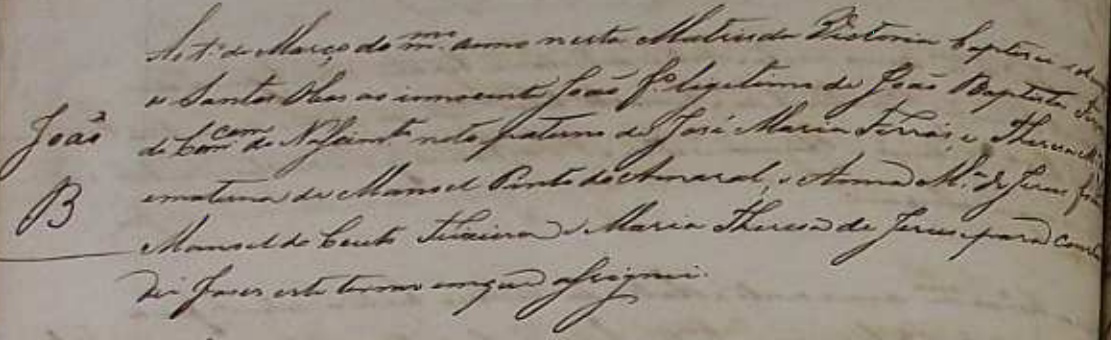 de Março do mmo anno nesta Matriz da Victoria baptisei e
os Santos Oleos ao innocente João fo legitimo de João Baptista
João
de Nascimto neto paterno de José Maria Ferras, e Theresa
e materna de Manoel Pinto do Amaral, e Anna Ma de Jesus
B
Manoel do Couto Teixeira e Maria Theresa de Jesus e para
dei fazer este termo em que assignei.